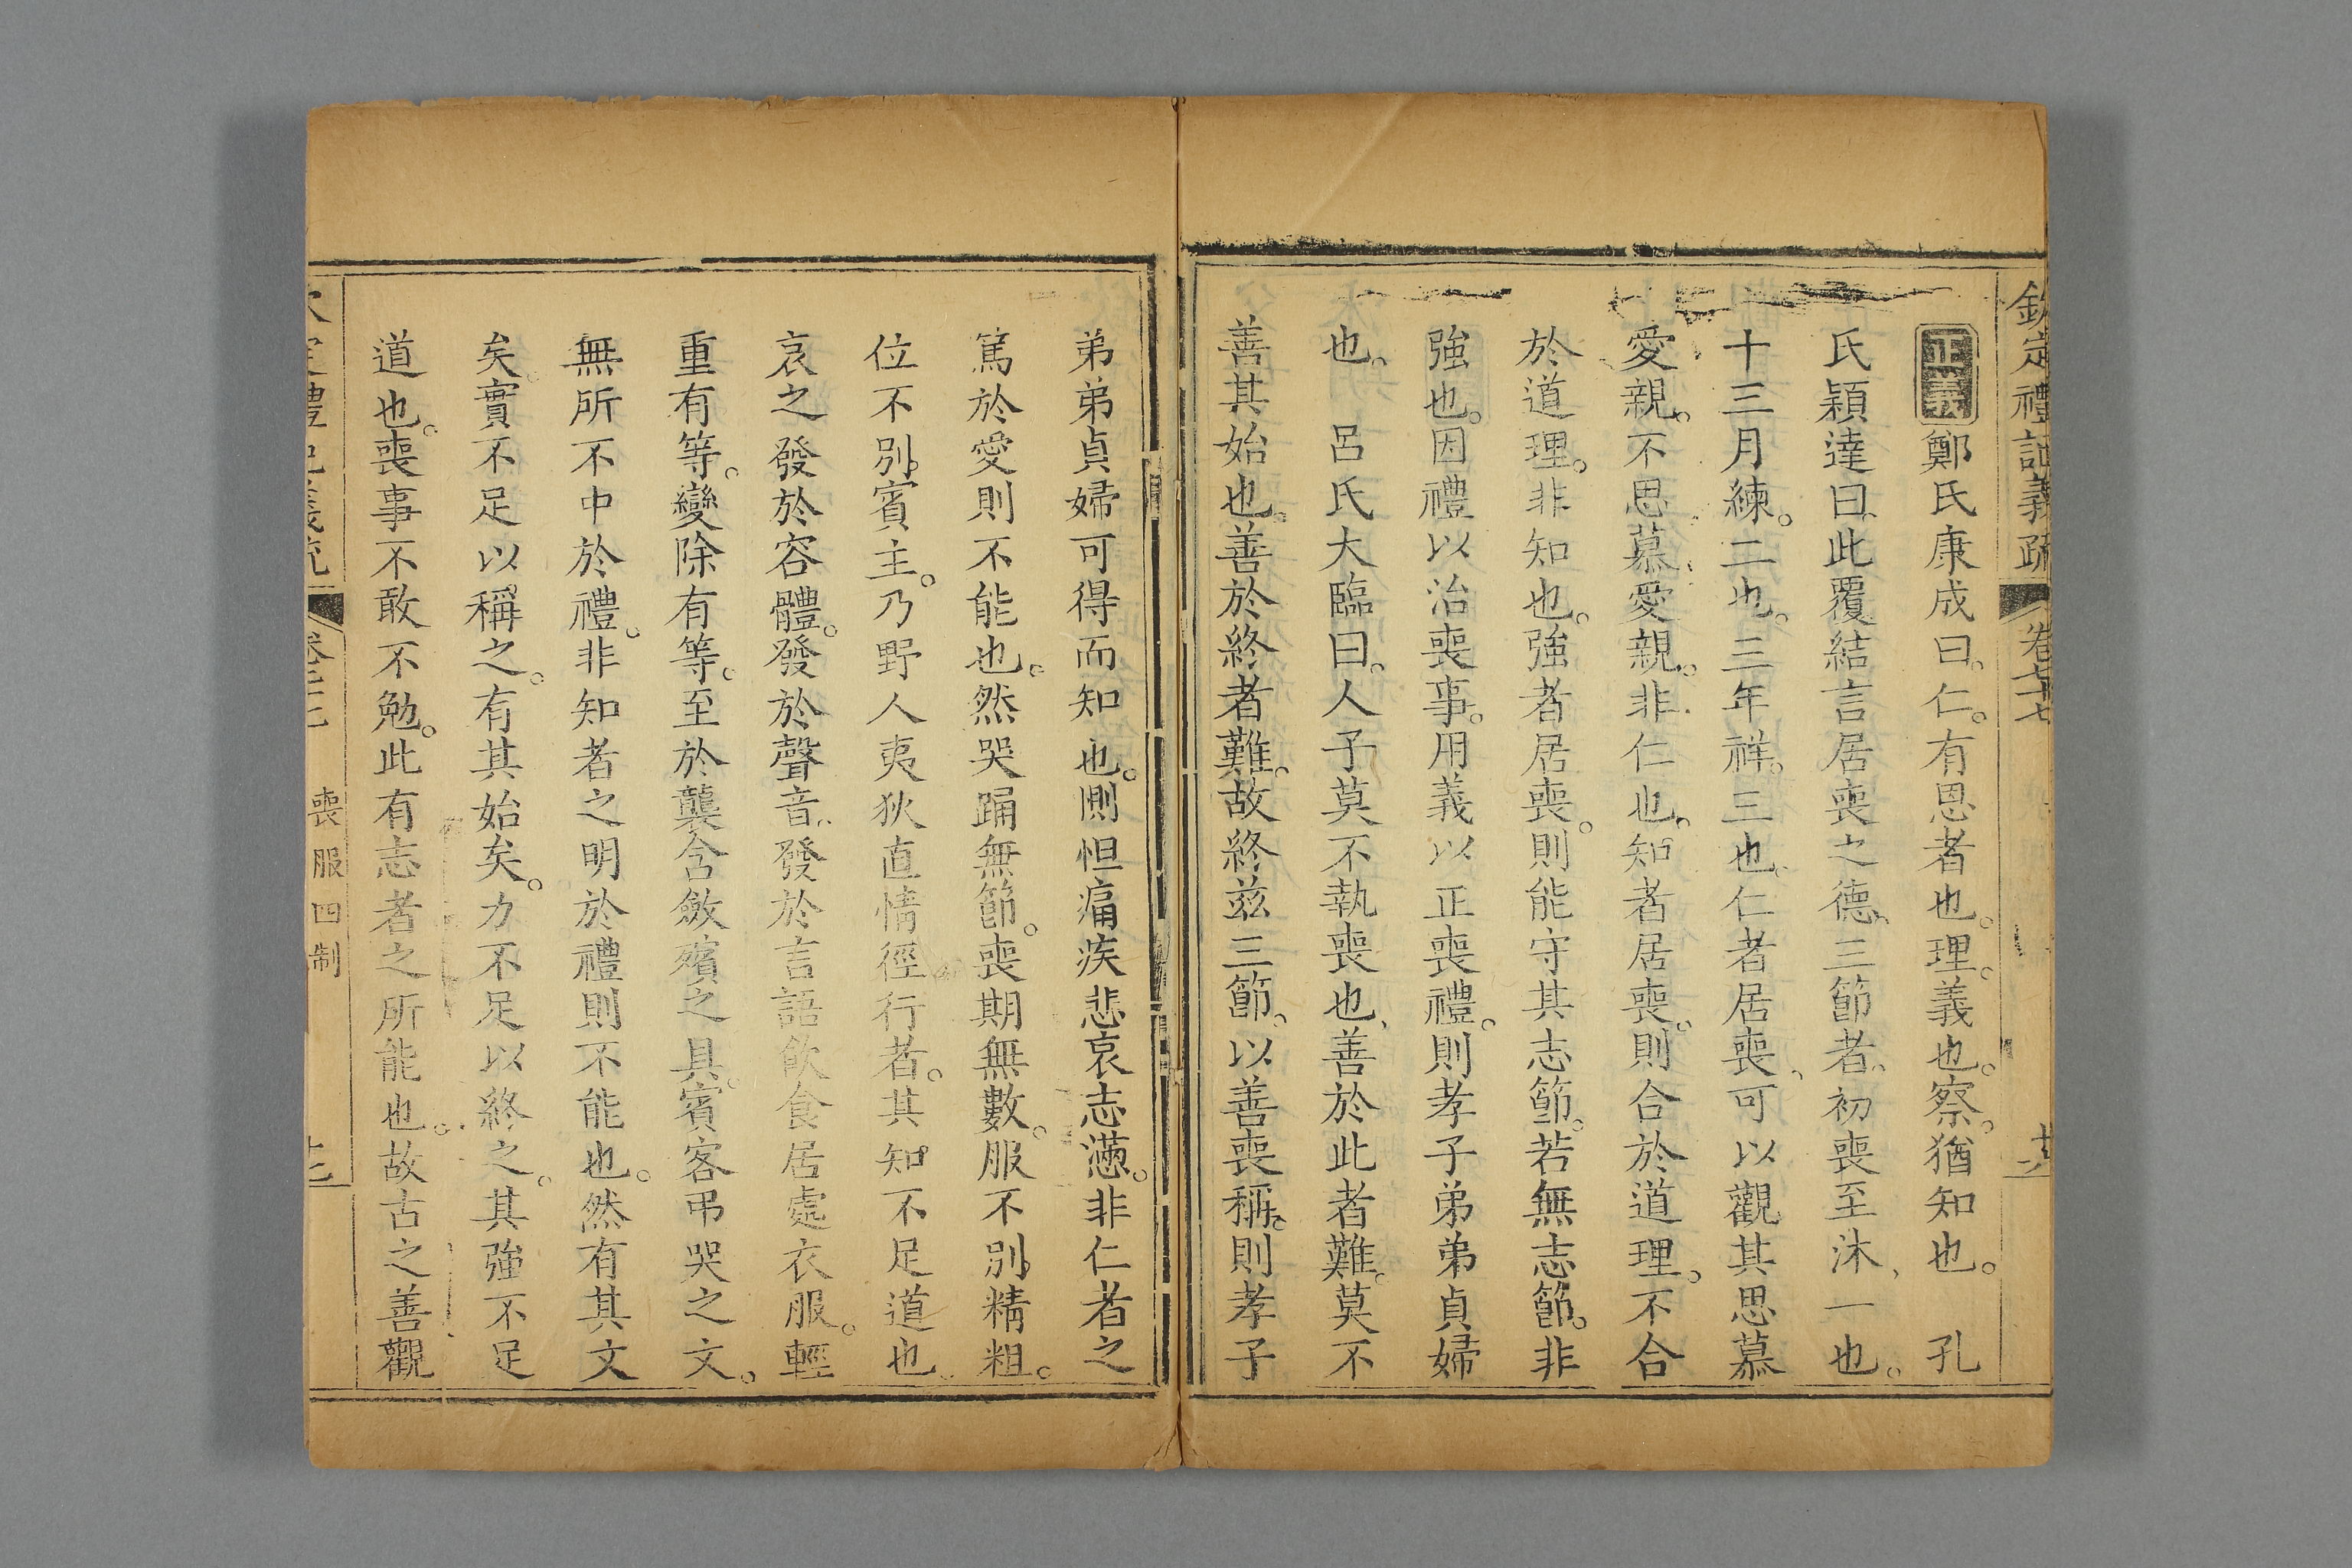 欽定禮記義疏 卷七十七
正義 鄭氏康成曰。仁。有恩者也。理。義也。察。猶知也。 孔
氏穎達曰。此覆結言居喪之德。三節者。初喪至沐、一也。
十三月練。二也。三年祥。三也。仁者居喪、可以觀其思慕
愛親。不思慕愛親。非仁也。知者居喪。則合於道理。不合
於道理。非知也。強者居喪。則能守其志節。若無志節。非
強也。因禮以治喪事。用義以正喪禮。則孝子弟弟貞婦
也。 呂氏大臨曰。人子莫不執喪也、善於此者難。莫不
善其始也。善於終者難。故終兹三節。以善喪稱。則孝子
弟弟貞婦可得而知也。惻怛痛疾悲哀志懣。非仁者之
篤於愛則不能也。然哭踊無節。喪期無數。服不別精粗。
位不別賓主。乃野人夷狄直情徑行者。其知不足道也。
哀之發於容體。發於聲音。發於言語飲食居處衣服。輕
重有等。變除有等。至於襲含斂殯之具。賓客弔哭之文。
無所不中於禮。非知者之明於禮則不能也。然有其文
矣。實不足以稱之。有其始矣。力不足以終之。其強不足
道也。喪事不敢不勉。此有志者之所能也。故古之善觀
喪服四制